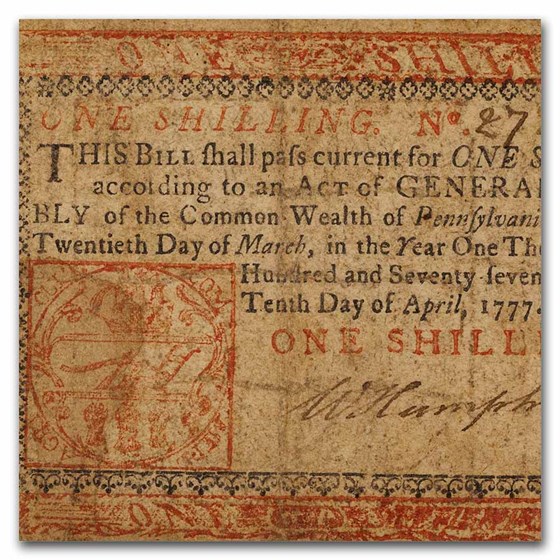 ONE SHILLI
ONE SHILLING. No. 27
THIS BILL ſhall paſs current for ONE S
according to an ACT of GENERA
BLY of the Common Wealth of Pennſylvani
Twentieth Day of March, in the Year One Tho
Hundred and Seventy-ſeven
Tenth Day of April, 1777.
ONE SHILLI
W Humph
ONE